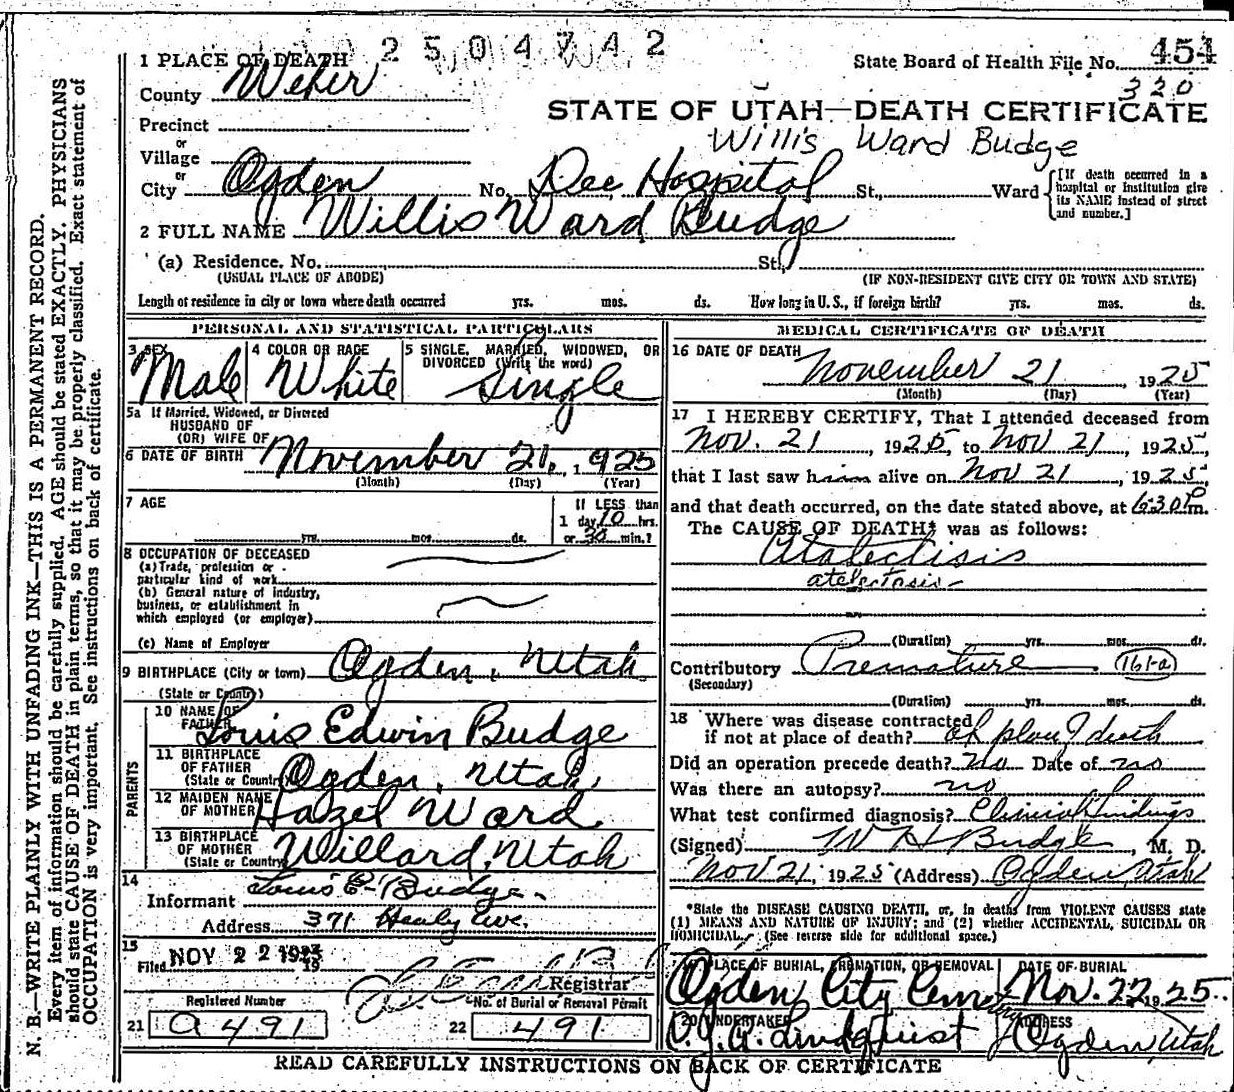 2504742
1 PLACE OF DEATH
State Board of Health File No. 454
320
County Weber
STATE OF UTAH—DEATH CERTIFICATE
Precinct
or
Willis Ward Budge
Village
or
City Ogden No. Dee Hospital St., Ward
[If death occurred in a
hospital or institution give
its NAME instead of street
and number.]
2 FULL NAME Willis Ward Budge
(a) Residence. No. St.,
(USUAL PLACE OF ABODE) (IF NON-RESIDENT GIVE CITY OR TOWN AND STATE)
Length of residence in city or town where death occurred yrs. mos. ds. How long in U. S., if foreign birth? yrs. mos. ds.
PERSONAL AND STATISTICAL PARTICULARS
3 SEX
Male
4 COLOR OR RACE
White
5 SINGLE, MARRIED, WIDOWED, OR
DIVORCED (Write the word)
Single
5a If Married, Widowed, or Divorced
HUSBAND OF
(OR) WIFE OF
6 DATE OF BIRTH November 21, 1925
(Month) (Day) (Year)
7 AGE
yrs. mos. ds.
If LESS than
1 day 10 hrs.
or 30 min.?
8 OCCUPATION OF DECEASED
(a) Trade, profession or
particular kind of work
(b) General nature of industry,
business, or establishment in
which employed (or employer)
(c) Name of Employer
9 BIRTHPLACE (City or town) Ogden, Utah
(State or Country)
PARENTS
10 NAME OF
FATHER Louis Edwin Budge
11 BIRTHPLACE
OF FATHER
(State or Country) Ogden, Utah,
12 MAIDEN NAME
OF MOTHER Hazel Ward
13 BIRTHPLACE
OF MOTHER
(State or Country) Willard, Utah
14
Informant Louis E. Budge.
Address 371 Healy Ave.
15
Filed NOV 22 1925
19
Registrar
Registered Number
21 a491
No. of Burial or Removal Permit
22 491
MEDICAL CERTIFICATE OF DEATH
16 DATE OF DEATH
November 21 1925
(Month) (Day) (Year)
17 I HEREBY CERTIFY, That I attended deceased from
Nov. 21, 1925, to Nov 21, 1925,
that I last saw him alive on Nov 21, 1925,
and that death occurred, on the date stated above, at 6:30 P.m.
The CAUSE OF DEATH* was as follows:
Atalectisis
atelectasis
(Duration) yrs. mos. ds.
Contributory Premature 161-a
(Secondary)
(Duration) yrs. mos. ds.
18 Where was disease contracted
if not at place of death? At place of death
Did an operation precede death? no Date of no
Was there an autopsy? no
What test confirmed diagnosis? Clinical findings
(Signed) W H Budge, M. D.
Nov 21, 1925 (Address) Ogden, Utah
*State the DISEASE CAUSING DEATH, or, in deaths from VIOLENT CAUSES state
(1) MEANS AND NATURE OF INJURY; and (2) whether ACCIDENTAL, SUICIDAL OR
HOMICIDAL. (See reverse side for additional space.)
PLACE OF BURIAL, CREMATION, OR REMOVAL
Ogden City Cemetery
DATE OF BURIAL
Nov. 22, 1925.
20 UNDERTAKER
Lindquist
ADDRESS
Ogden, Utah
READ CAREFULLY INSTRUCTIONS ON BACK OF CERTIFICATE
N. B.—WRITE PLAINLY WITH UNFADING INK—THIS IS A PERMANENT RECORD.
Every item of information should be carefully supplied. AGE should be stated EXACTLY. PHYSICIANS
should state CAUSE OF DEATH in plain terms, so that it may be properly classified. Exact statement of
OCCUPATION is very important. See instructions on back of certificate.